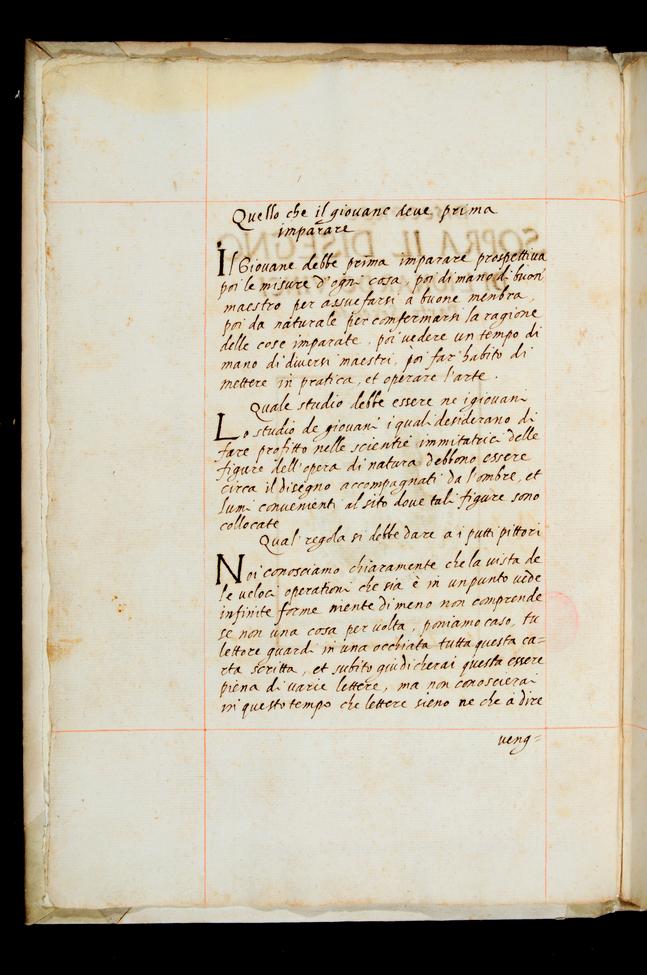 Quello che il giovane deve prima
imparare
Il Giovane debbe prima imparare prospettiva
poi le misure d'ogni cosa, poi di mano di buon
maestro per assuefarsi à buone menbra,
poi da naturale per comfermarsi la ragione
delle cose imparate, poi vedere un tempo di
mano di diversi maestri, poi far habito di
mettere in pratica, et operare l'arte.
Quale studio debbe essere ne i giovani
Lo studio de giovani i quali desiderano di
fare profitto nelle scientie immitatrici delle
figure dell'opera di natura debbono essere
circa il disegno accompagnati da l'ombre, et
lumi convenienti al sito dove tali figure sono
collocate
Qual regola si debbe dare a i putti pittori
Noi conosciamo chiaramente che la vista de
le veloci operationi che sia è in un punto vede
infinite forme mente di meno non comprende
se non una cosa per volta, poniamo caso, tu
lettore guardi in una occhiata tutta questa ca=
rta scritta, et subito giudicherai questa essere
piena di varie lettere, ma non conoscierai
in questo tempo che lettere sieno ne che à dire
veng=